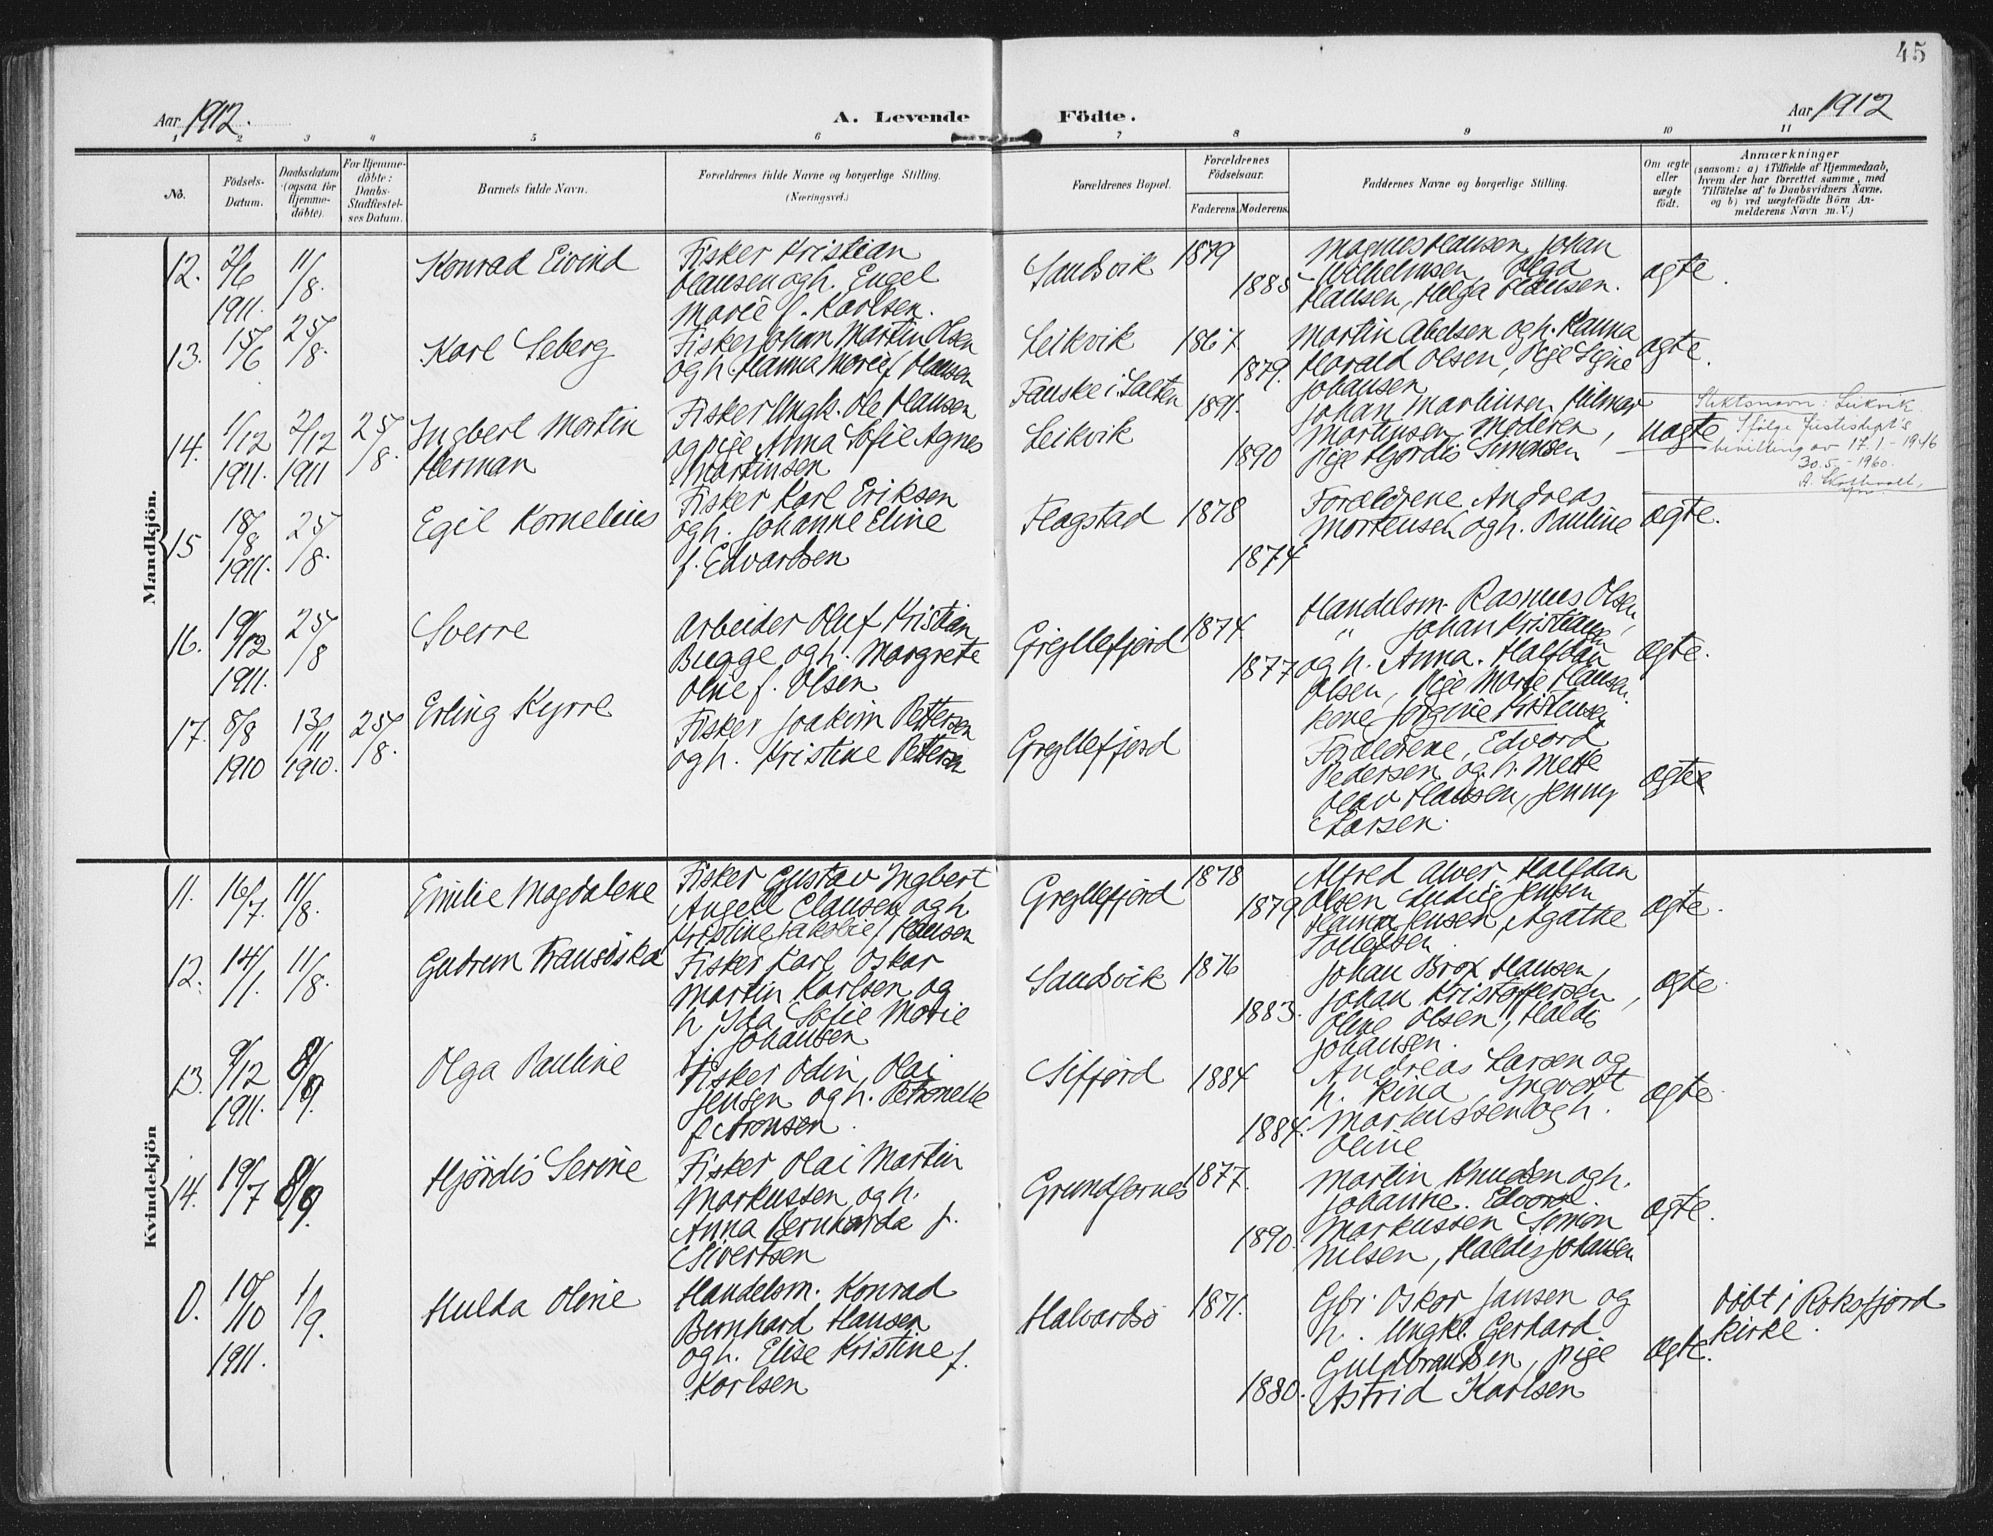 45
Aar 1912.
A. Levende Födte.
Aar 1912
1 2 3 4 5 6 7 8 9 10 11
No.
Födsels-
Datum.
Daabsdatum
(ogsaa for
Hjemme-
döbte).
For Hjemme-
döbte:
Daabs-
Stadfæstel-
ses Datum.
Barnets fulde Navn.
Forældrenes fulde Navne og borgerlige Stilling.
(Næringsvei.)
Forældrenes Bopæl.
Forældrenes
Födselsaar.
Faderens. Moderens.
Faddernes Navne og borgerlige Stilling.
Om ægte
eller
uægte
födt.
Anmærkninger
(saasom: a) i Tilfælde af Hjemmedaab,
hvem der har forrettet samme, med
Tilföielse af to Daabsvidners Navne.
og b) ved uægtefödte Börn An-
melderens Navn m. V.)
Mandkjön.
12.
2/6
1911.
11/8.
Konrad Eivind
Fisker Kristian
Hansen og h. Engel
Marie f. Karlsen.
Sandsvik
1879
1885
Magnus Hansen, Johan
Wilhelmsen Olga
Hansen, Helga Hansen.
ægte.
13.
15/6
25/8.
Karl Seberg
Fisker Johan Martin Olsen
og h. Hanna Marie f. Hansen
Leikvik
1867
1879.
Martin Abelsen og h. Hanna
Harald Olsen, Pige Signe
Johansen
ægte.
14.
1/12
1911.
2/12
1911
25/8.
Ingbert Martin
Herman
Fisker Ungk. Ole Hansen
og pige Anna Sofie Agnes
Martinsen
Fauske i Salten
Leikvik
1891.
1890
Johan Martinsen Hilmar
Martinsen Moderen,
Pige Hjördis Simonsen
uægte
Slektsnavn: Leikvik
Ifölge Justisdept's
bevilling av 17.1-1946
30.5.-1960.
15
18/8
1911.
25/8.
Egil Kornelius
Fisker Karl Eriksen
og h. Johanne Eline
f. Edvardsen
Flagstad
1878
1874
Forældrene Andreas
Mortensen og h. Pauline
ægte.
16.
19/12
1911.
25/8
Sverre
Arbeider Oluf Kristian
Bugge og h. Margrete
Oline f. Olsen
Gryllefjord
1874
1877
Handelsm. Rasmus Olsen,
" Johan Kristiansen
og h. Anna. Halfdan
Olsen, Pige Marie Hansen.
kone Jorgine Kristensen
ægte.
17.
8/8
1910
13/11
1910.
25/8.
Erling Kyrre
Fisker Joakim Pettersen
og h. Kristine Pettersen
Gryllefjord
Forældrene, Edvard
Pedersen og h. Mette
Olav Hansen, Jenny
Larsen.
ægte
Kvindekjön
11.
16/7.
11/8.
Emilie Magdalene
Fisker Gustav Ingbert
Angell Clausen og h
Kristine Jakobie f Hansen
Gryllefjord
1878
1879
Alfred Alver Halfdan
Olsen Ludvig Jensen
Hanna Jensen, Agathe
Tollefsen
ægte.
12.
14/1.
11/8.
Gudrun Fransiska
Fisker Karl Oskar
Martin Karlsen og
h, Ida Sofie Marie
f. Johansen
Sandsvik
1876
1883.
Johan Brox Hansen,
Johan Kristoffersen,
Oline Olsen, Haldis
Johansen.
ægte.
13.
9/12
1911.
8/9.
Olga Pauline
Fisker Odin Olai
Jensen og h. Petronelle
f Aronsen.
Sifjord
1884
1884.
Andreas Larsen og
h. Rina Ingvart
Markussen og h.
Oline
ægte.
14.
19/7
8/9.
Hjördis Serine
Fisker Olai Martin
Markussen og h.
Anna Bernharda f.
Sivertsen
Grundfarnes
1877.
1890.
Martin Knudsen og h.
Johanne. Edvard
Markussen Simon
Nilsen, Haldis Johansen
ægte.
0.
10/10
1911.
1/9.
Hulda Oline
Handelsm. Konrad
Bernhard Hansen
og h. Elise Kristine f.
Karlsen
Halvardsö
1871.
1880.
Gbr. Oskar Jansen og
h. Ungk. Gerhard
Guldbrandsen, pige
Astrid Karlsen
ægte.
Döbt i Roksfjord
Kirke.